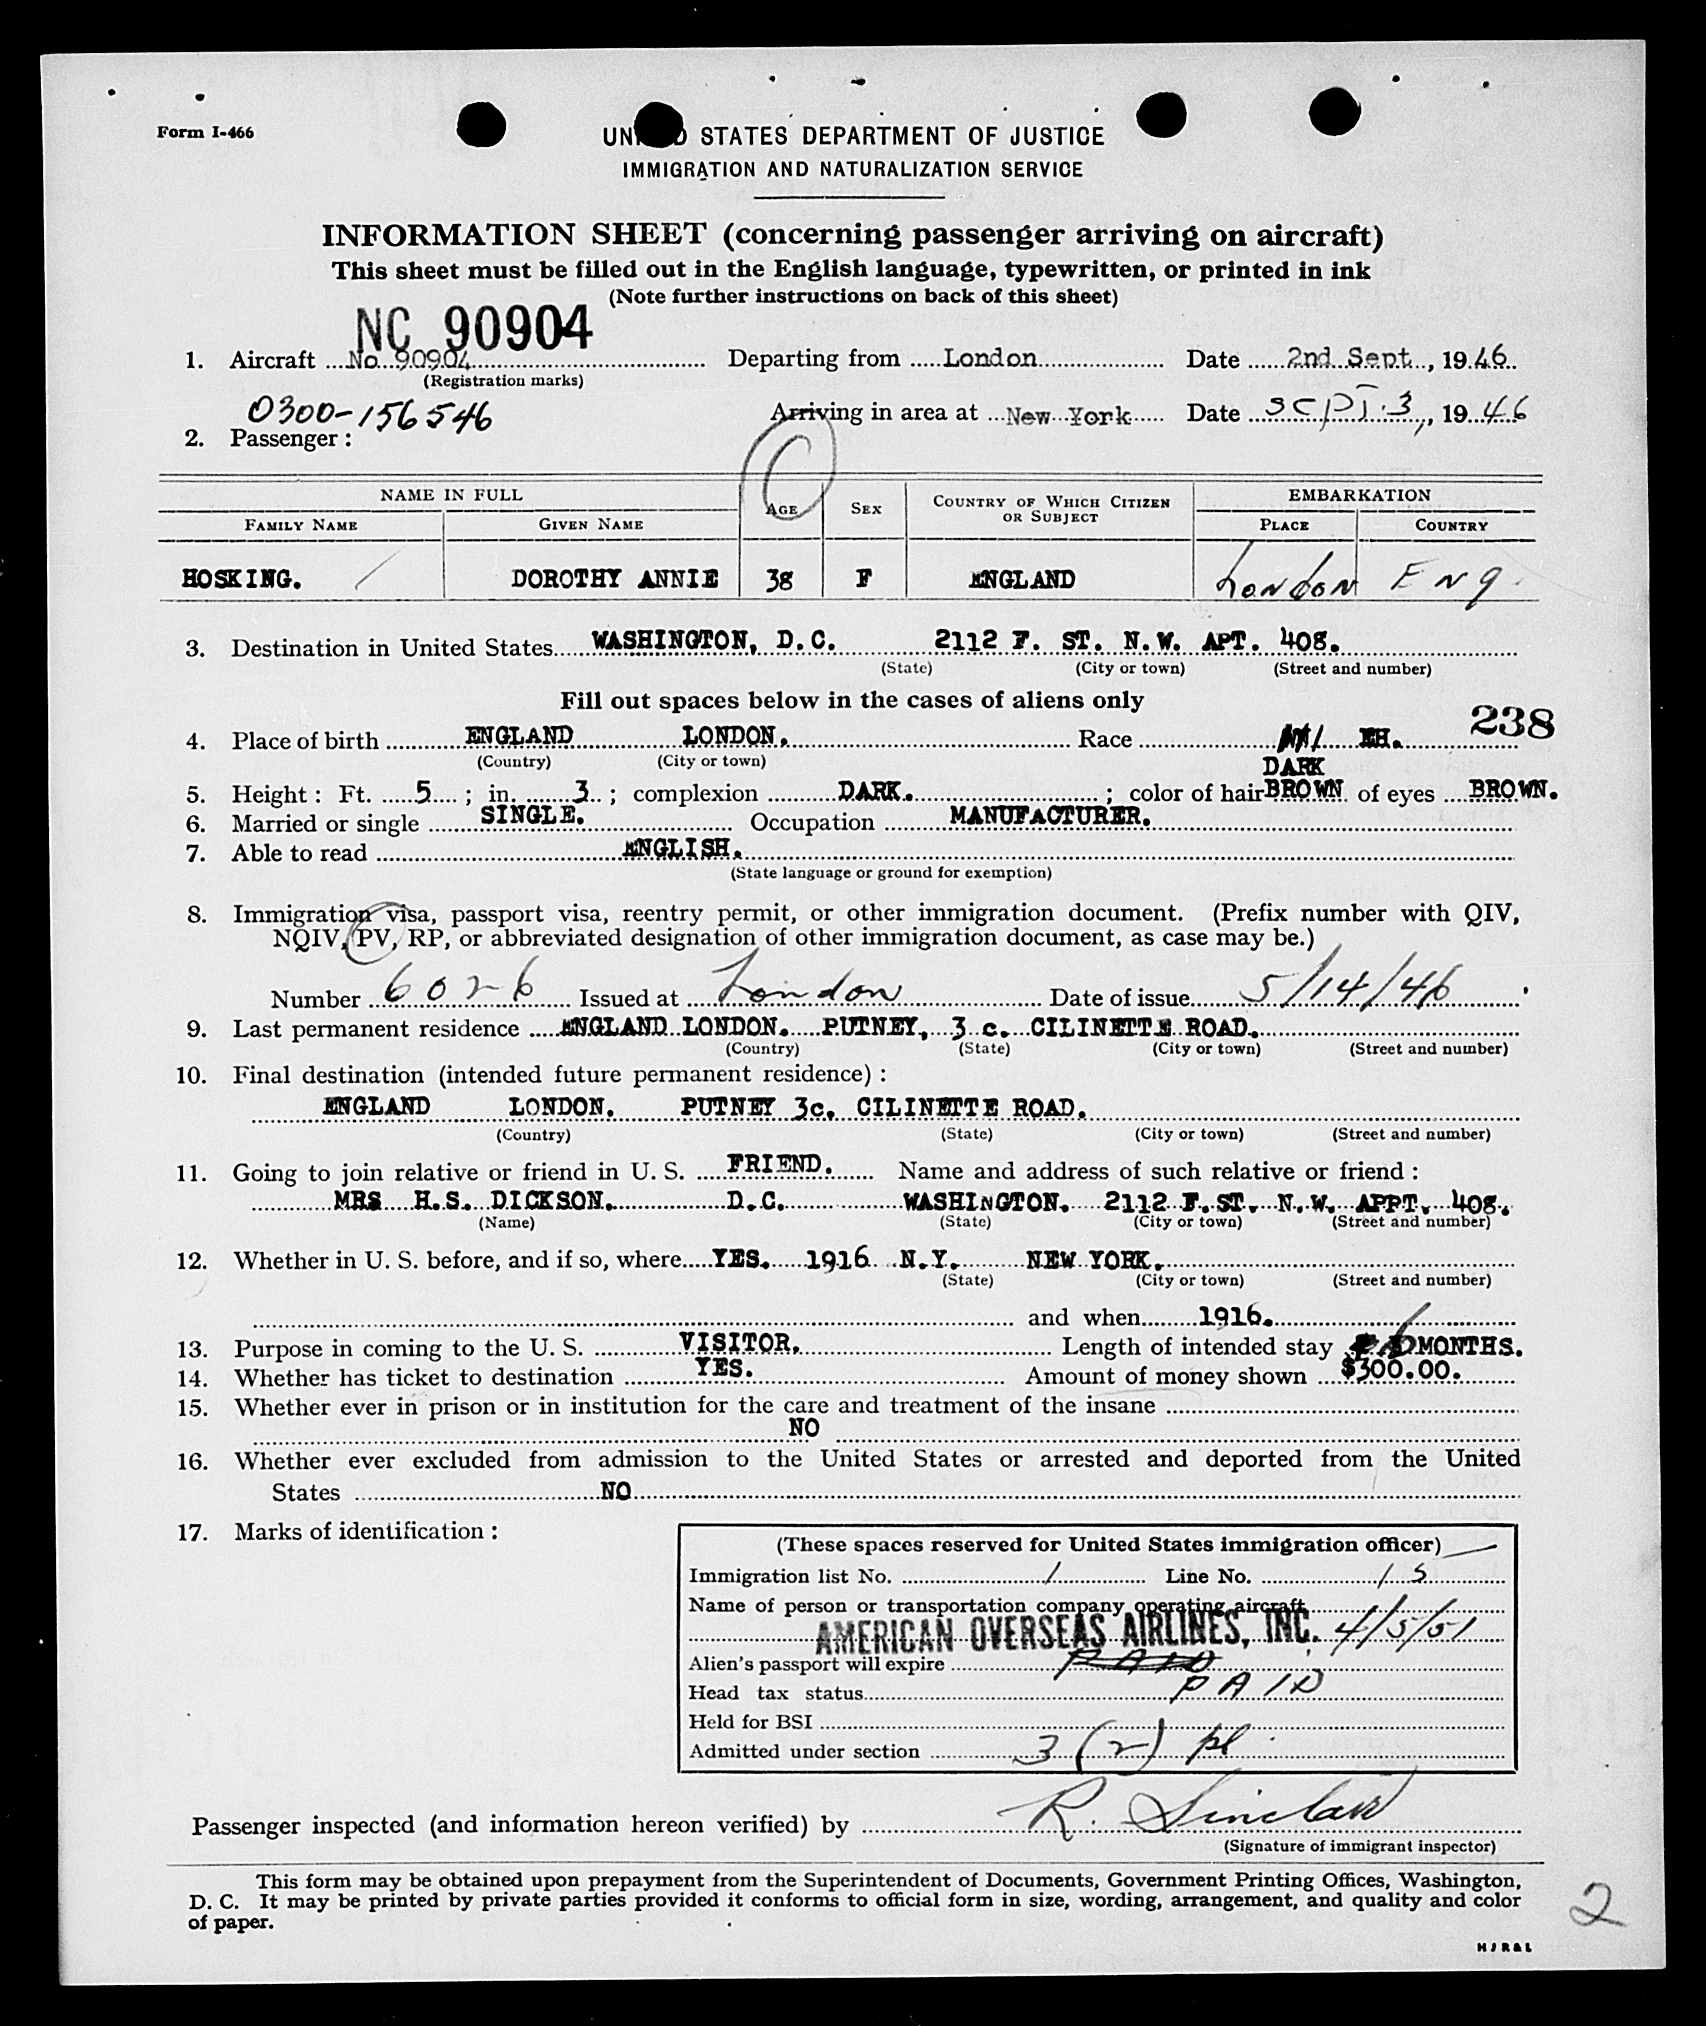 Form I-466
UNITED STATES DEPARTMENT OF JUSTICE
IMMIGRATION AND NATURALIZATION SERVICE
INFORMATION SHEET (concerning passenger arriving on aircraft)
This sheet must be filled out in the English language, typewritten, or printed in ink
(Note further instructions on back of this sheet)
NC 90904
1. Aircraft No 90904 Departing from London Date 2nd Sept, 1946
(Registration marks)
0300-156546 Arriving in area at New York Date SEPT 3, 1946
2. Passenger:
NAME IN FULL EMBARKATION
FAMILY NAME GIVEN NAME AGE SEX COUNTRY OF WHICH CITIZEN OR SUBJECT PLACE COUNTRY
HOSKING. DOROTHY ANNIE 38 F ENGLAND London Eng.
3. Destination in United States WASHINGTON, D.C. 2112 F. ST. N.W. APT. 408.
(State) (City or town) (Street and number)
Fill out spaces below in the cases of aliens only
238
4. Place of birth ENGLAND LONDON. Race EH.
(Country) (City or town)
DARK
5. Height: Ft. 5; in. 3; complexion DARK.; color of hair BROWN of eyes BROWN.
6. Married or single SINGLE. Occupation MANUFACTURER.
7. Able to read ENGLISH.
(State language or ground for exemption)
8. Immigration visa, passport visa, reentry permit, or other immigration document. (Prefix number with QIV,
NQIV, PV, RP, or abbreviated designation of other immigration document, as case may be.)
Number 6026 Issued at London Date of issue 5/14/46
9. Last permanent residence ENGLAND LONDON. PUTNEY, 3 c. CILINETTE ROAD.
(Country) (State) (City or town) (Street and number)
10. Final destination (intended future permanent residence):
ENGLAND LONDON. PUTNEY 3c. CILINETTE ROAD.
(Country) (State) (City or town) (Street and number)
11. Going to join relative or friend in U. S. FRIEND. Name and address of such relative or friend:
MRS H.S. DICKSON. D.C. WASHINGTON. 2112 F. ST. N.W. APPT. 408.
(Name) (State) (City or town) (Street and number)
12. Whether in U. S. before, and if so, where YES. 1916 N.Y. NEW YORK.
(State) (City or town) (Street and number)
and when 1916.
13. Purpose in coming to the U. S. VISITOR. Length of intended stay 6 MONTHS.
14. Whether has ticket to destination YES. Amount of money shown $300.00.
15. Whether ever in prison or in institution for the care and treatment of the insane
NO
16. Whether ever excluded from admission to the United States or arrested and deported from the United
States NO
17. Marks of identification:
(These spaces reserved for United States immigration officer)
Immigration list No. 1 Line No. 15
Name of person or transportation company operating aircraft
AMERICAN OVERSEAS AIRLINES, INC. 4/5/51
Alien's passport will expire PAID
Head tax status PAID
Held for BSI
Admitted under section 3 (2) pl
Passenger inspected (and information hereon verified) by R. Sinclair
(Signature of immigrant inspector)
This form may be obtained upon prepayment from the Superintendent of Documents, Government Printing Offices, Washington,
D. C. It may be printed by private parties provided it conforms to official form in size, wording, arrangement, and quality and color
of paper.
2
H J R & L